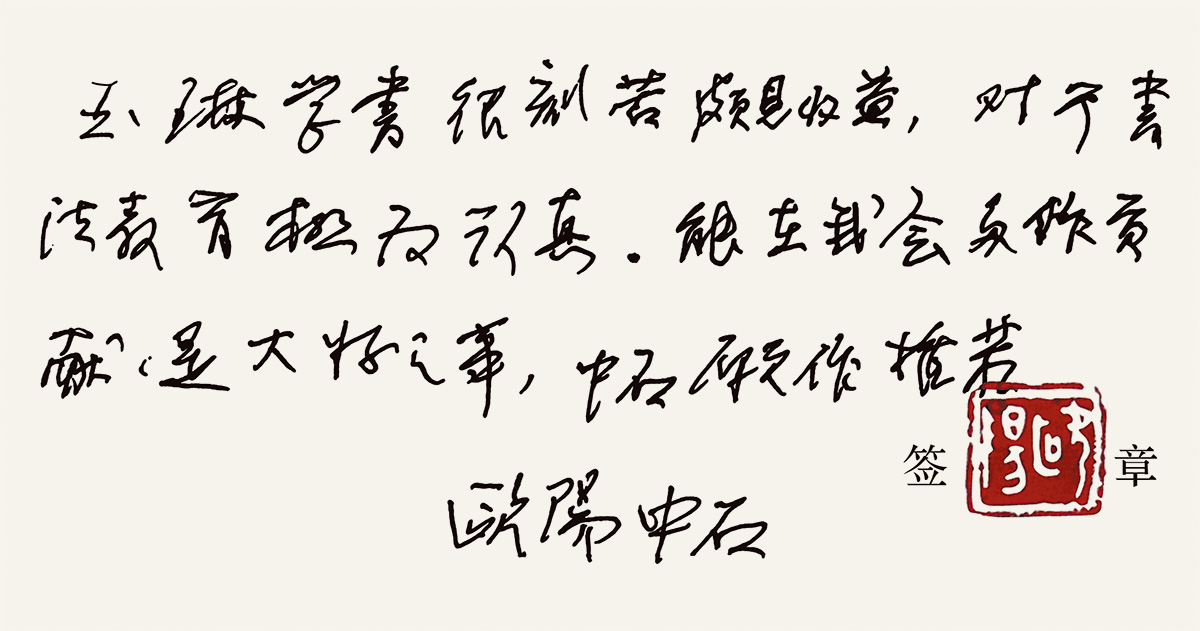 玉琳学書很刻苦頗見收益，对于書
法教育極为认真．能在我会多作贡
献是大好之事，中石願作推荐
签 章
歐陽中石